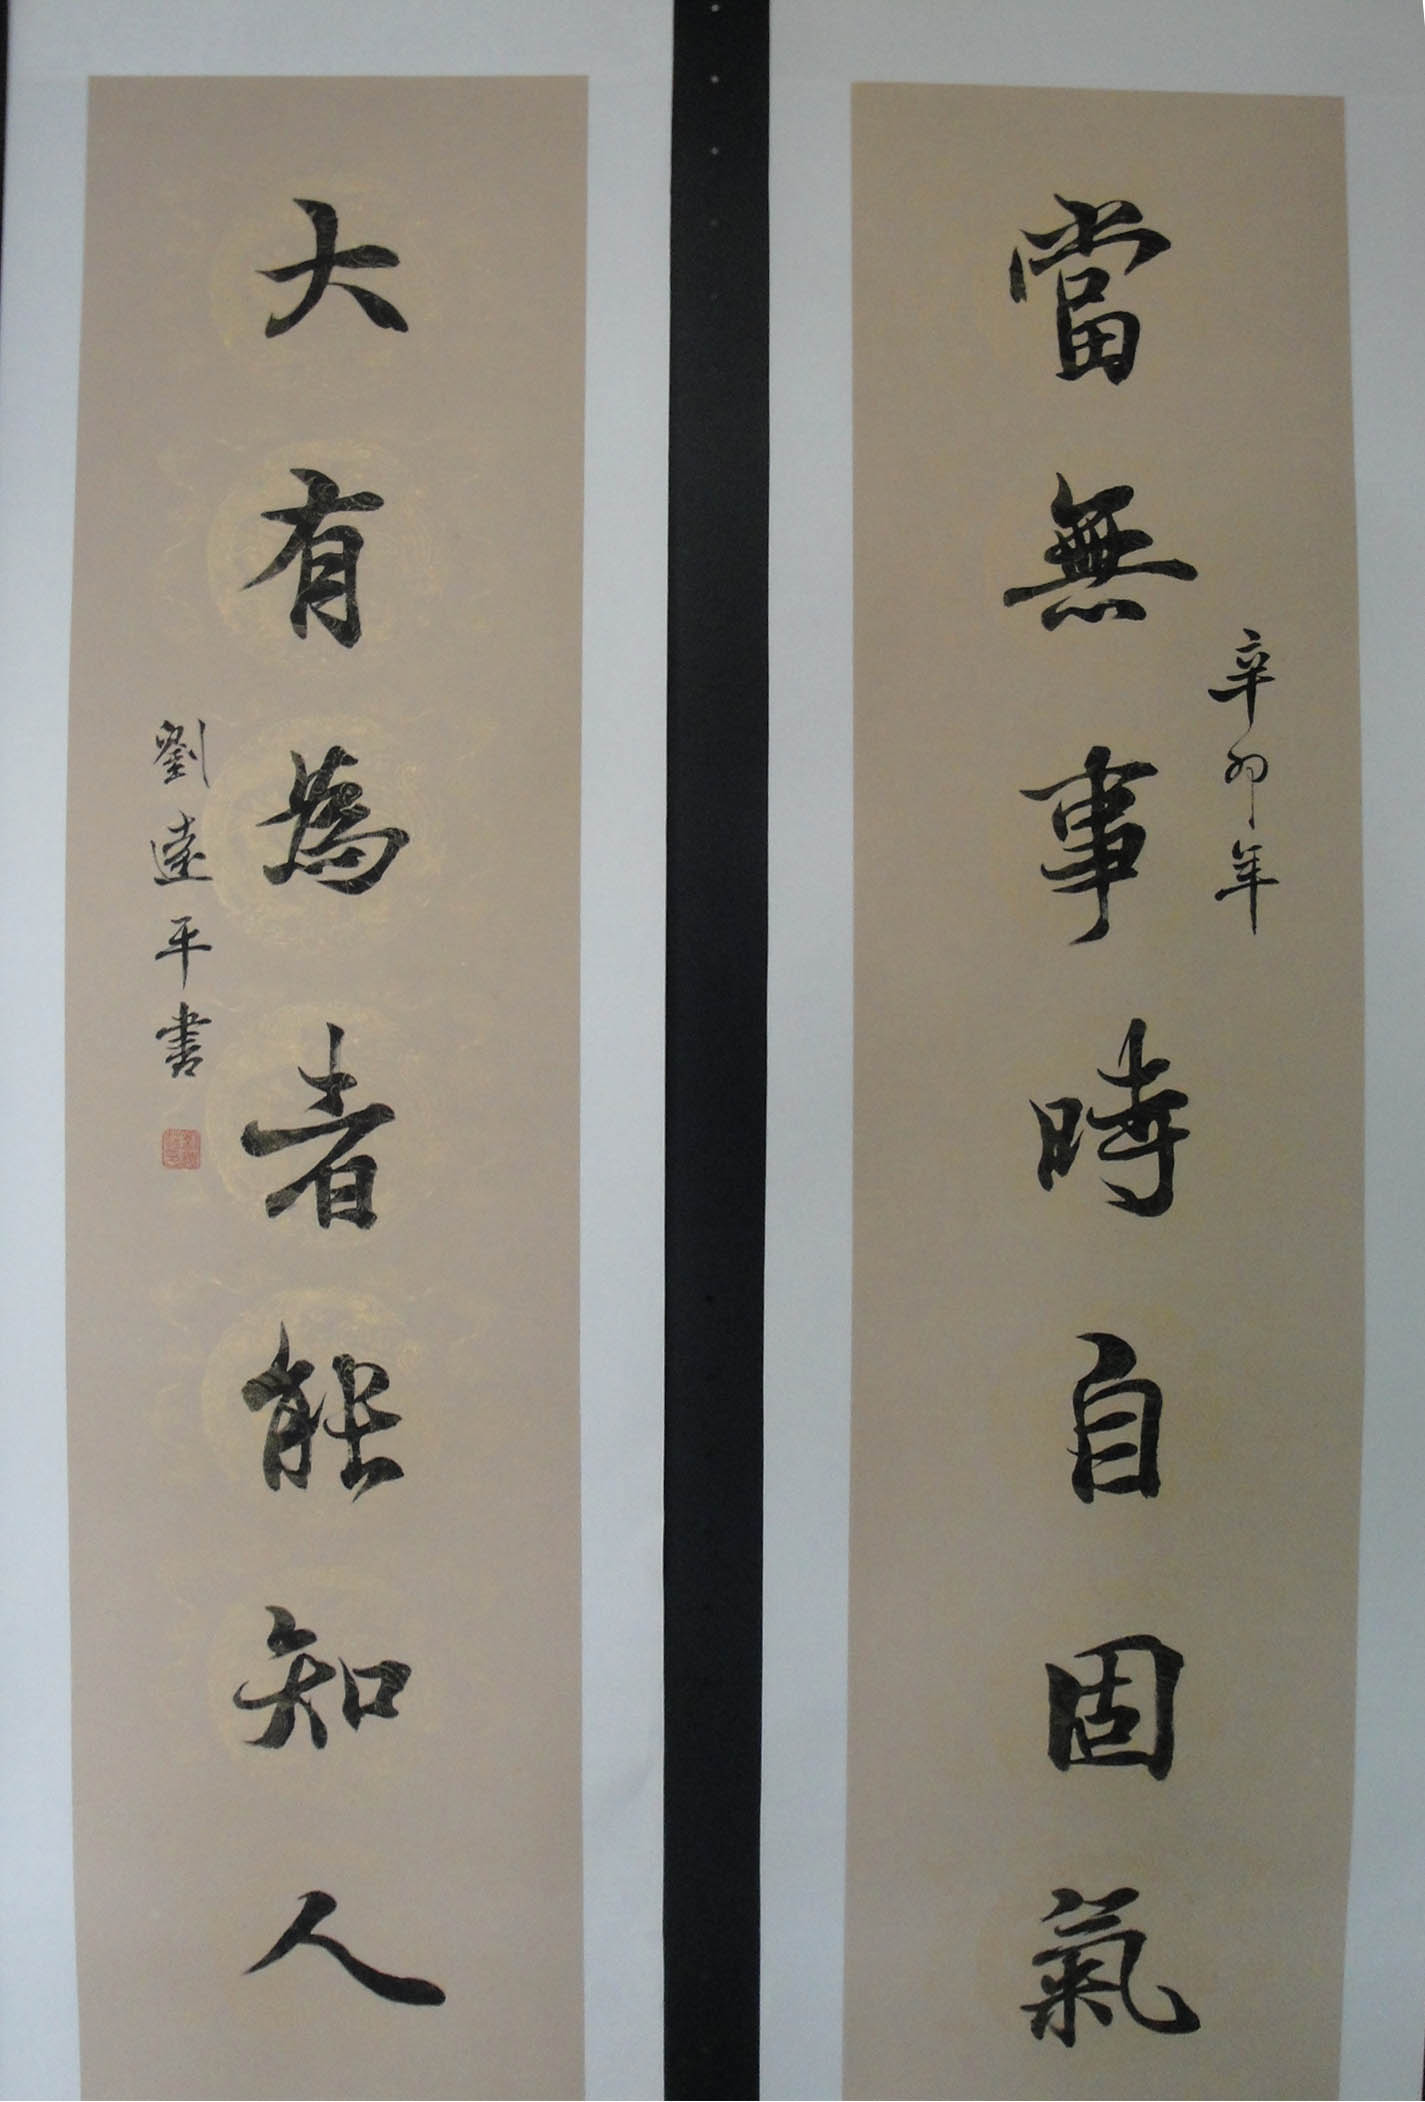 辛卯年
當無事時自固氣
大有為者能知人
劉遠平書